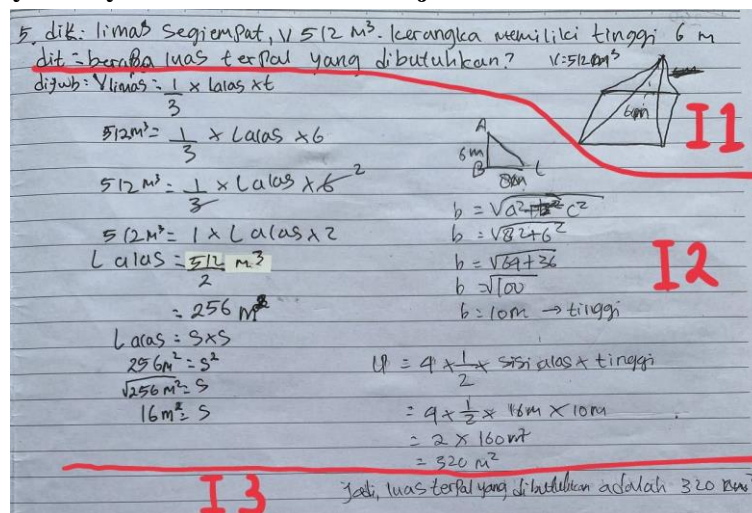 5. dik: limas segiempat, V 512 M³. kerangka memiliki tinggi 6 m
dit = berapa luas terpal yang dibutuhkan?
V=512m³
6m
I1
dijwb: Vlimas = 1/3 x Lalas xt
512m³ = 1/3 x Lalas x6
512 M³ = 1/3 x Lalas x 6 2
512M³ = 1 x Lalas x 2
L alas = 512/2 m³
= 256 m²
Lalas = SxS
256m² = S²
√256 m² = S
16m² = S
A
6m
B
8m
C
b = √a²+ c²
b = √8²+6²
b = √64+36
b = √100
b = 10m → tinggi
I2
LP = 4 x 1/2 x sisi alas x tinggi
= 4 x 1/2 x 16m x 10m
= 2 x 160m²
= 320 m²
I3
Jadi, luas terpal yang dibutuhkan adalah 320